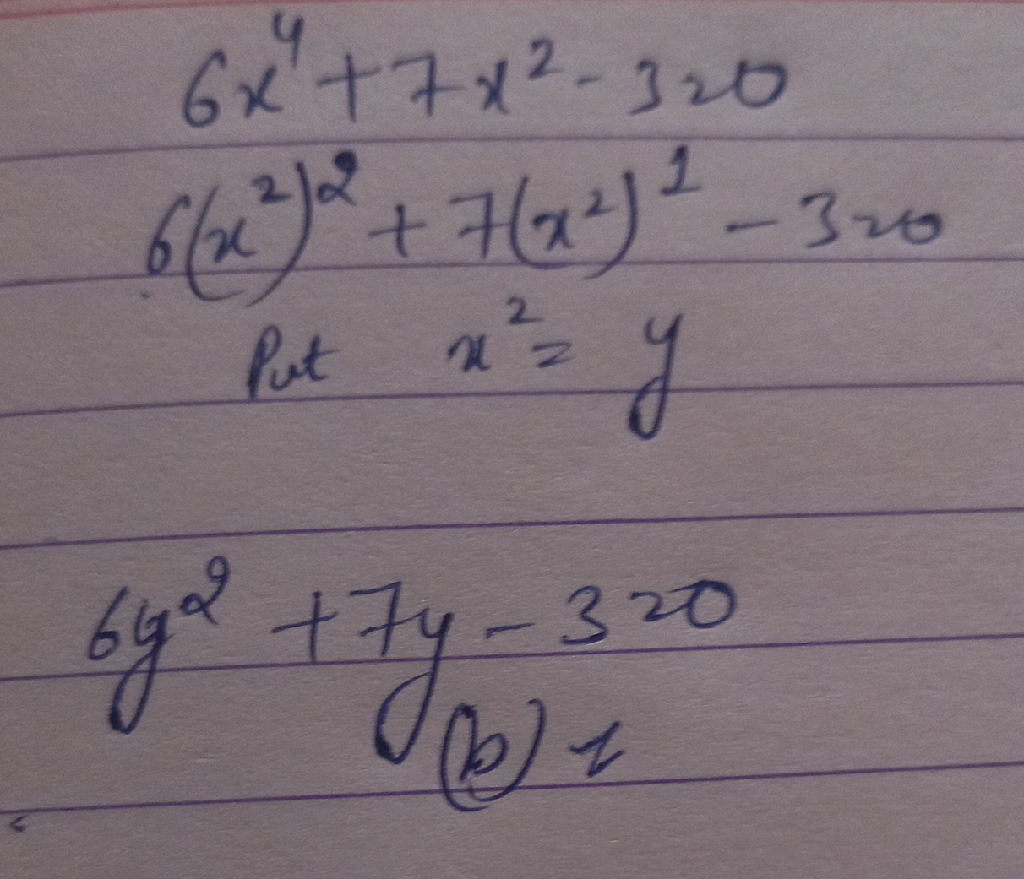 6x⁴+7x²-3=0
6(x²)²+7(x²)¹-3=0
Put x²=y
6y²+7y-3=0
(b)